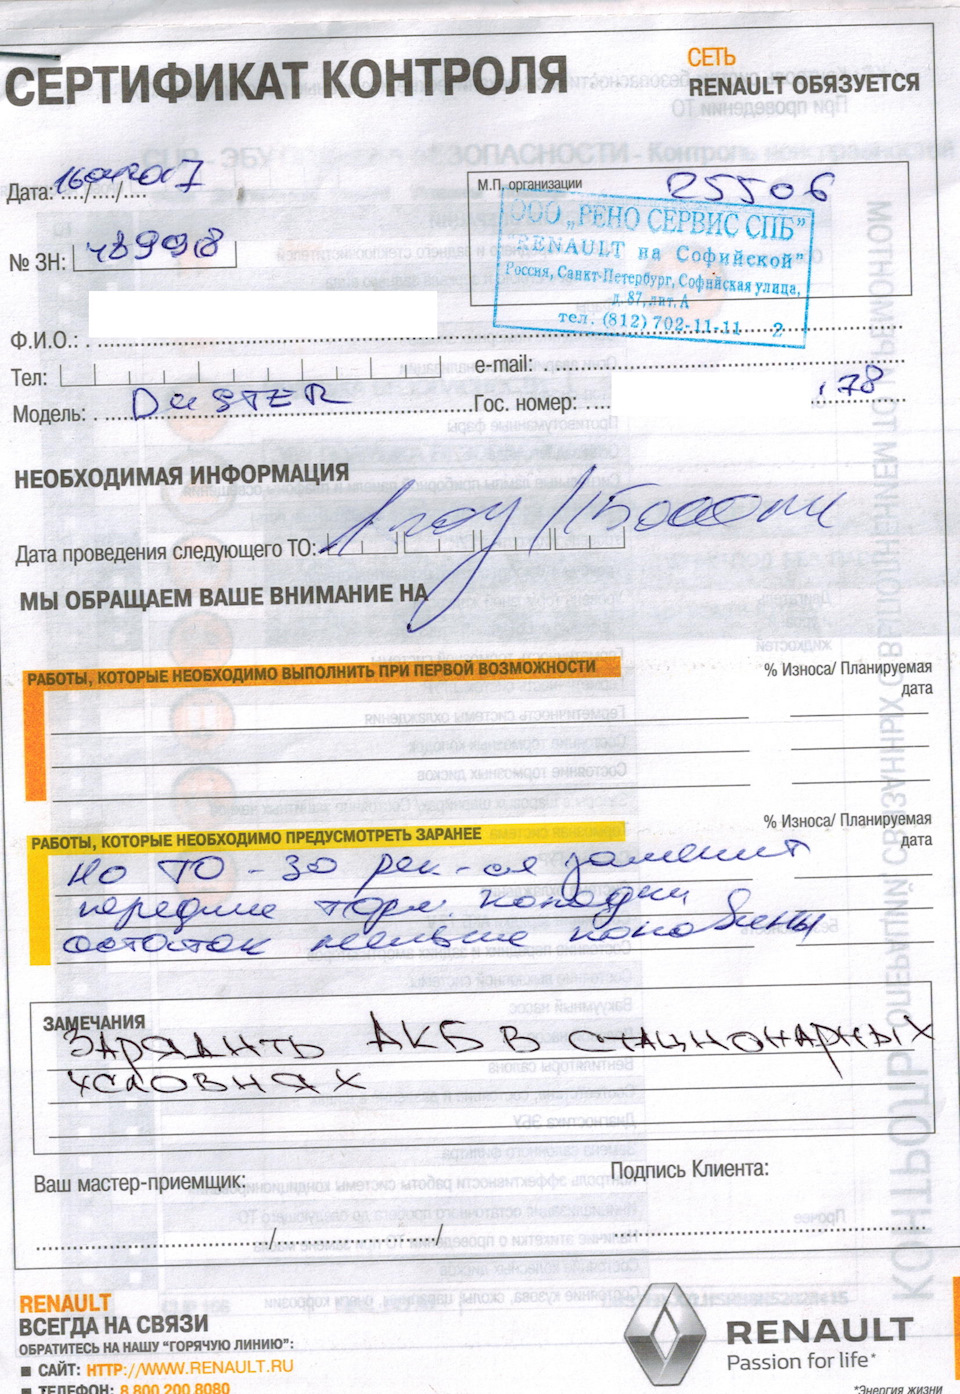 СЕРТИФИКАТ КОНТРОЛЯ
СЕТЬ
RENAULT ОБЯЗУЕТСЯ
Дата:
М.П. организации
25506
ООО „РЕНО СЕРВИС СПБ”
"RENAULT на Софийской"
Россия, Санкт-Петербург, Софийская улица,
д. 87, лит. А
тел. (812) 702-11-11 2
№ ЗН: 48998
Ф.И.О.:
Тел:
e-mail:
Модель: DUSTER
Гос. номер: 178
НЕОБХОДИМАЯ ИНФОРМАЦИЯ
Дата проведения следующего ТО: 1 году / 15000
МЫ ОБРАЩАЕМ ВАШЕ ВНИМАНИЕ НА
РАБОТЫ, КОТОРЫЕ НЕОБХОДИМО ВЫПОЛНИТЬ ПРИ ПЕРВОЙ ВОЗМОЖНОСТИ
% Износа/ Планируемая
дата
РАБОТЫ, КОТОРЫЕ НЕОБХОДИМО ПРЕДУСМОТРЕТЬ ЗАРАНЕЕ
% Износа/ Планируемая
дата
На ТО-30 рек-ся заменит
передние торм. колодки
остаток меньше половины
ЗАМЕЧАНИЯ
ЗАРЯДИТЬ АКБ В СТАЦИОНАРНЫХ
УСЛОВИЯХ
Ваш мастер-приемщик:
Подпись Клиента:
RENAULT
ВСЕГДА НА СВЯЗИ
ОБРАТИТЕСЬ НА НАШУ “ГОРЯЧУЮ ЛИНИЮ”:
САЙТ: HTTP://WWW.RENAULT.RU
ТЕЛЕФОН: 8 800 200 8080
RENAULT
Passion for life*
*Энергия жизни